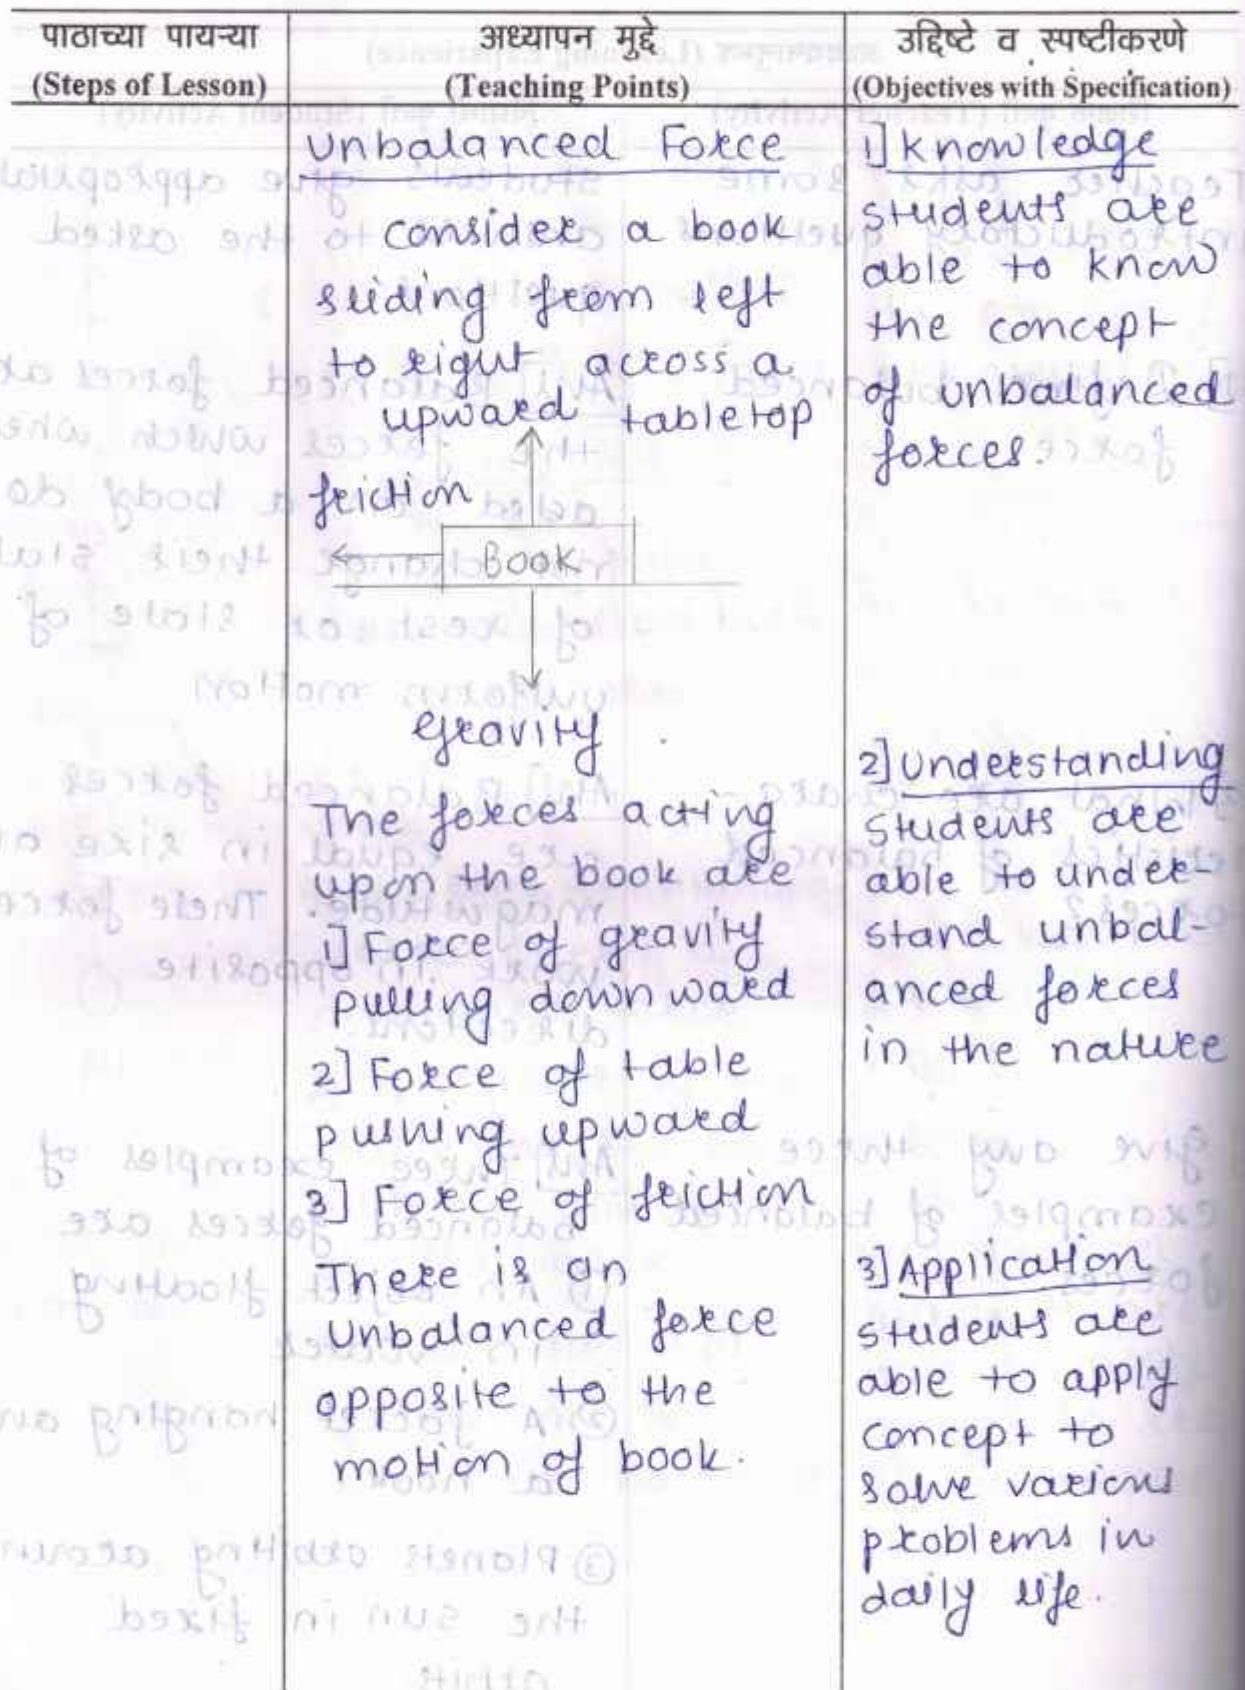 पाठाच्या पायऱ्या
(Steps of Lesson)
अध्यापन मुद्दे
(Teaching Points)
उद्दिष्टे व स्पष्टीकरणे
(Objectives with Specification)
Unbalanced Force
consider a book
sliding from left
to right across a
upward tabletop
friction
Book
gravity
The forces acting
upon the book are
1] Force of gravity
pulling downward
2] Force of table
pushing upward
3] Force of friction
There is an
Unbalanced force
opposite to the
motion of book.
1] knowledge
students are
able to know
the concept
of unbalanced
forces.
2] Understanding
students are
able to under-
stand unbal-
anced forces
in the nature
3] Application
students are
able to apply
concept to
solve various
problems in
daily life.